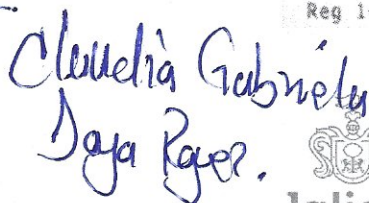 Reg 1
Claudia Gabriela
Daya
Jalis